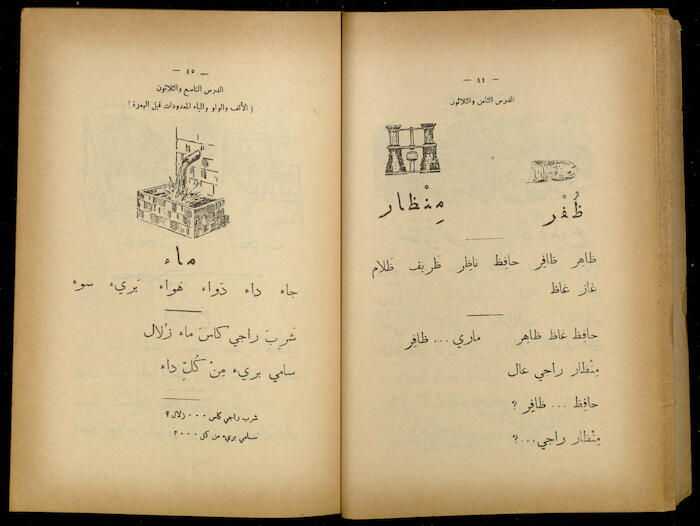 — ٤٤ —
الدرس الثامن والثلاثون
ظُفْر
مِنْظار
ظاهِر ظافِر حافِظ ناظِر ظَريف ظَلام
غاز غاظ
حافِظ غاظ ظاهِر ماري ... ظافِر
مِنْظار راجي عال
حافِظ ... ظافِر ؟
مِنْظار راجي ...؟
— ٤٥ —
الدرس التاسع والثلاثون
( الألف والواو والياء الممدودات قبل الهمزة )
ماء
جاء داء دَواء هَواء بَريء سوء
شَرِبَ راجي كاسَ ماء زُلال
سامي بريء مِنْ كُلِّ داء
شرب راجي كاس ٠٠٠ زلال ؟
سامي بريء من كل ٠٠٠٠ ؟